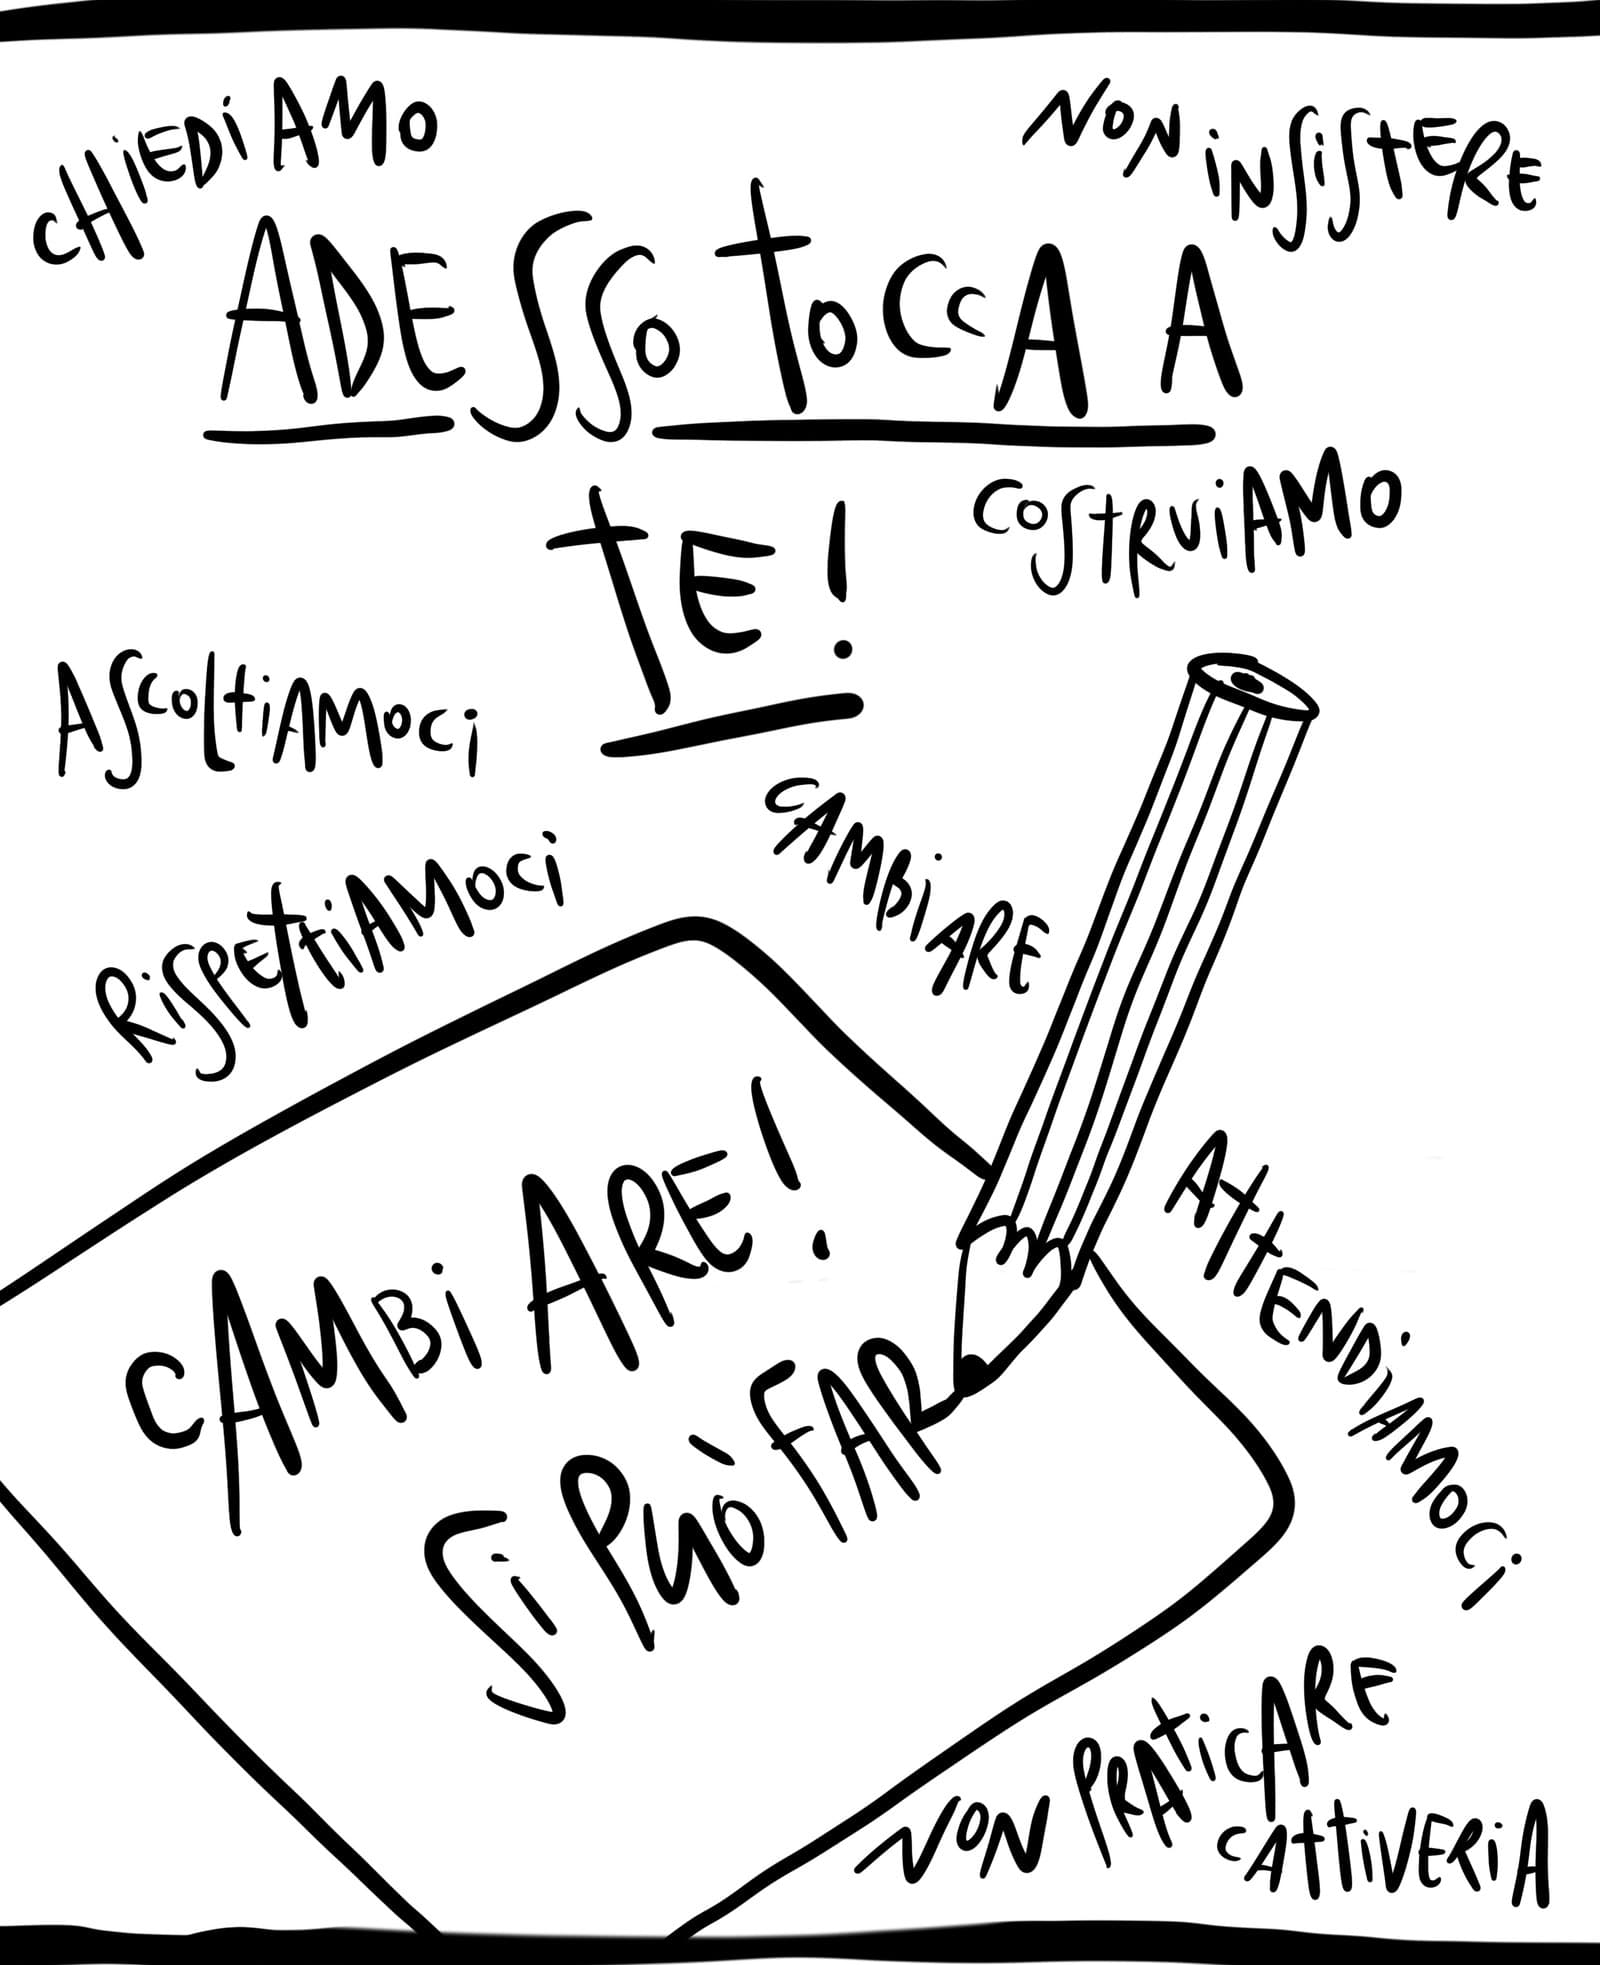 CHIEDIAMO
NON INSISTERE
ADESSO TOCCA A
TE!
COSTRUIAMO
ASCOLTIAMOCI
CAMBIARE
RISPETTIAMOCI
CAMBIARE!
SI PUÒ FAR
ATTENDIAMOCI
NON PRATICARE
CATTIVERIA